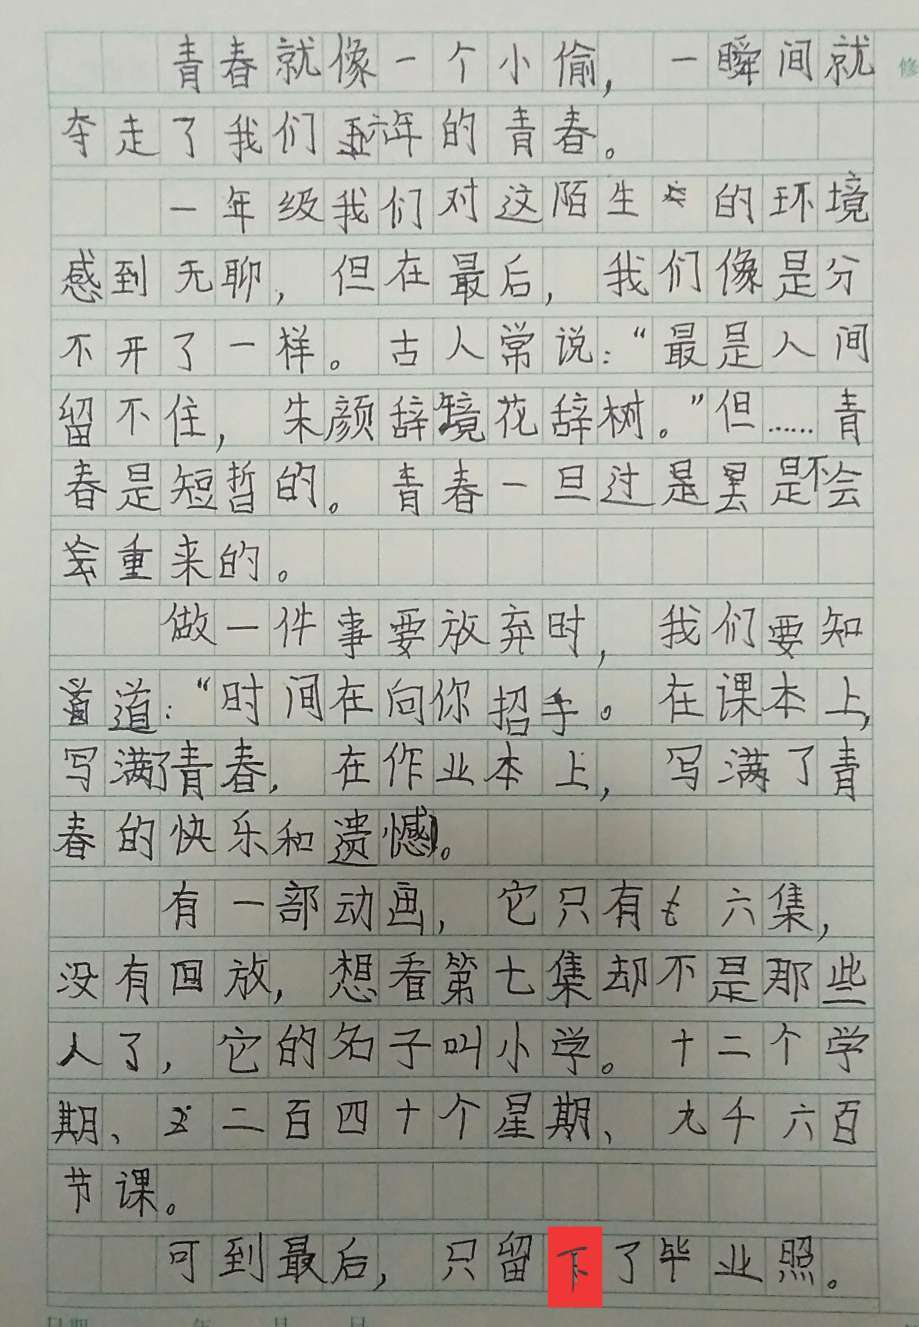 青春就像一个小偷，一瞬间就
夺走了我们六年的青春。
一年级我们对这陌生的环境
感到无聊，但在最后，我们像是分
不开了一样。古人常说：“最是人间
留不住，朱颜辞镜花辞树。”但……青
春是短哲的。青春一旦过是罢是不会
重来的。
做一件事要放弃时，我们要知
道：“时间在向你招手。在课本上，
写满了青春，在作业本上，写满了青
春的快乐和遗憾。
有一部动画，它只有六集，
没有回放，想看第七集却不是那些
人了，它的名子叫小学。十二个学
期、二百四十个星期、九千六百
节课。
可到最后，只留下了毕业照。